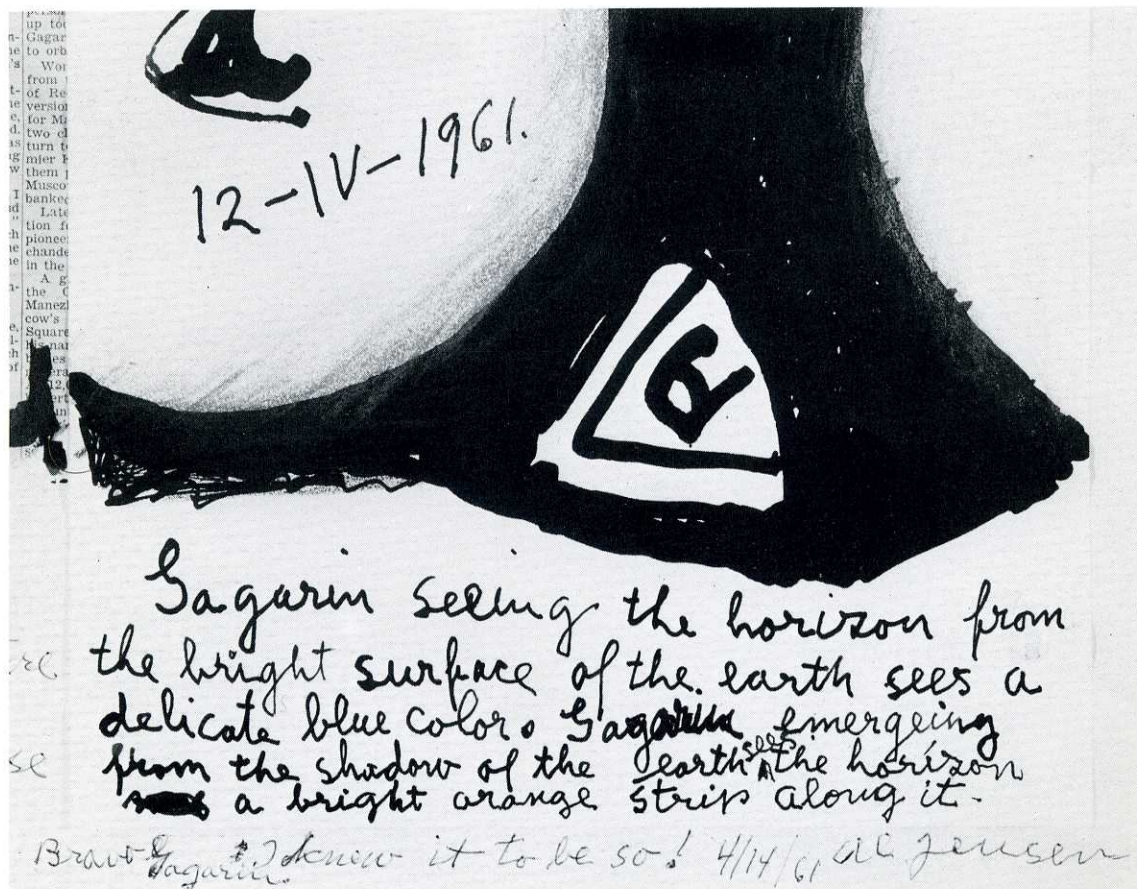 up to
Gagar
to orb
Wor
from
of Re
versio
for Ma
two cl
turn t
mier
them
Musco
banked
Late
tion f
pionee
chande
in the
A g
the
Manezh
cow's
Square
12-IV-1961.
Gagarin seeing the horizon from
the bright surface of the earth sees a
delicate blue color. Gagarin emergeing
from the shadow of the earth sees the horizon
a bright orange strip along it.
Bravo Gagarin. I knew it to be so! 4/14/61 Al Jensen